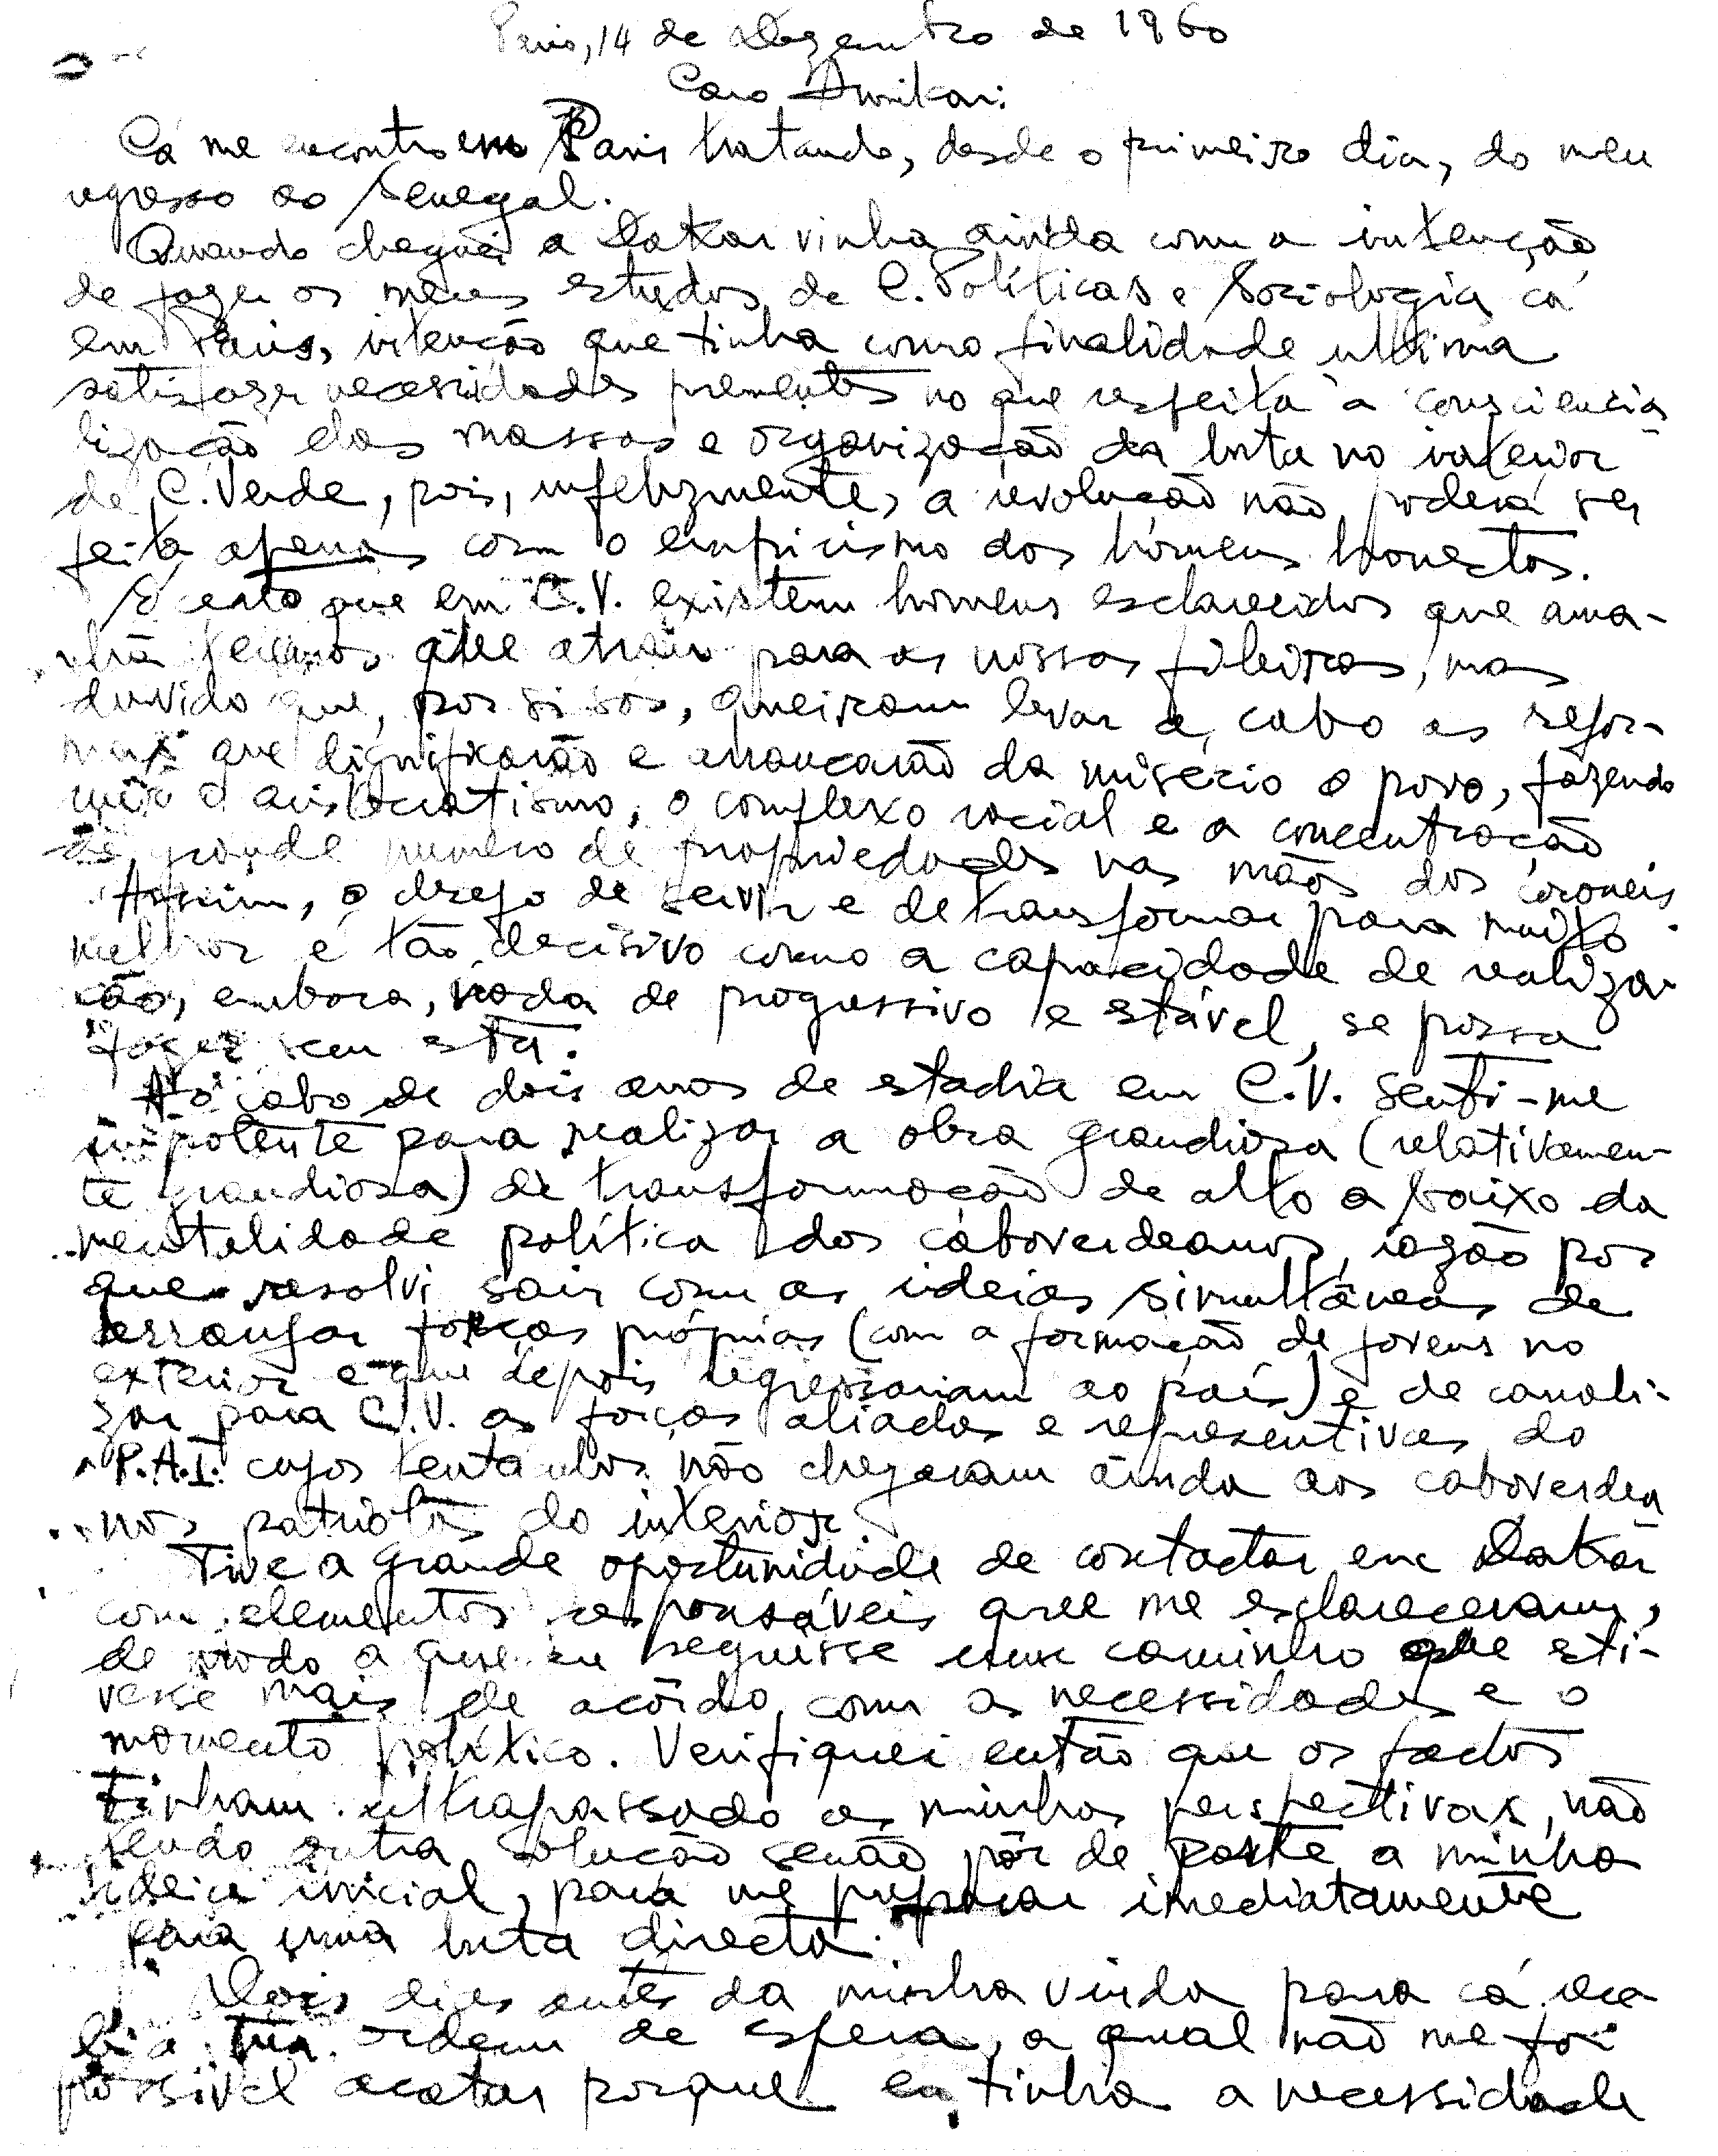 Paris, 14 de Dezembro de 1960
Caro Amílcar:
Cá me encontro em Paris tratando, desde o primeiro dia, do meu
regresso ao Senegal.
Quando cheguei a Dakar vinha ainda com a intenção
de fazer os meus estudos de C. Políticas e Sociologia cá
em Paris, intenção que tinha como finalidade ultima
satisfazer necessidades prementes no que respeita à consciencia
lização das massas e organização da luta no interior
de C. Verde, pois, infelizmente, a revolução não poderá ser
feita apenas com o empirismo dos homens honestos.
É certo que em C.V. existem homens esclarecidos que ama-
nhã que atrair para as nossas fileiras, mas
duvido que, por si sós, queiram levar a cabo as refor-
mas que dignificarão e arrancarão da miseria o povo, fazendo
o aristocratismo, o complexo racial e a concentração
de grande numero de propriedades nas mãos dos coroneis
Assim, o desejo de servir e de transformar para muito
melhor é tão decisivo como a capacidade de realiza
ção, embora, nada de progressivo e estável, se possa
fazer sem esta.
Ao cabo de dois anos de estadia em C.V. senti-me
impotente para realizar a obra grandiosa (relativamen-
te grandiosa) de transformação de alto a baixo da
mentalidade política dos caboverdeanos, razão por
que resolvi sair com as ideias simultâneas de
arranjar forças próprias (com a formação de jovens no
exterior e que depois regressariam ao país) e de canali-
zar para C.V. as forças aliadas e representivas do
P.A.I. cujos tentaculos não chegaram ainda aos caboverdea
nos patriotas do interior.
Tive a grande oportunidade de contactar em Dakar
com elementos responsáveis que me esclareceram,
de modo a que eu seguisse um caminho que esti-
vesse mais de acôrdo com as necessidades e o
momento político. Verifiquei então que os factos
tinham ultrapassado as minhas perspectivas, não
tendo outra solução senão pôr de parte a minha
ideia inicial, para me preparar imediatamente
para uma luta directa.
Dois dias antes da minha vinda para cá rece
bi a tua ordem de espera, a qual não me foi
possivel acatar porque eu tinha a necessidade